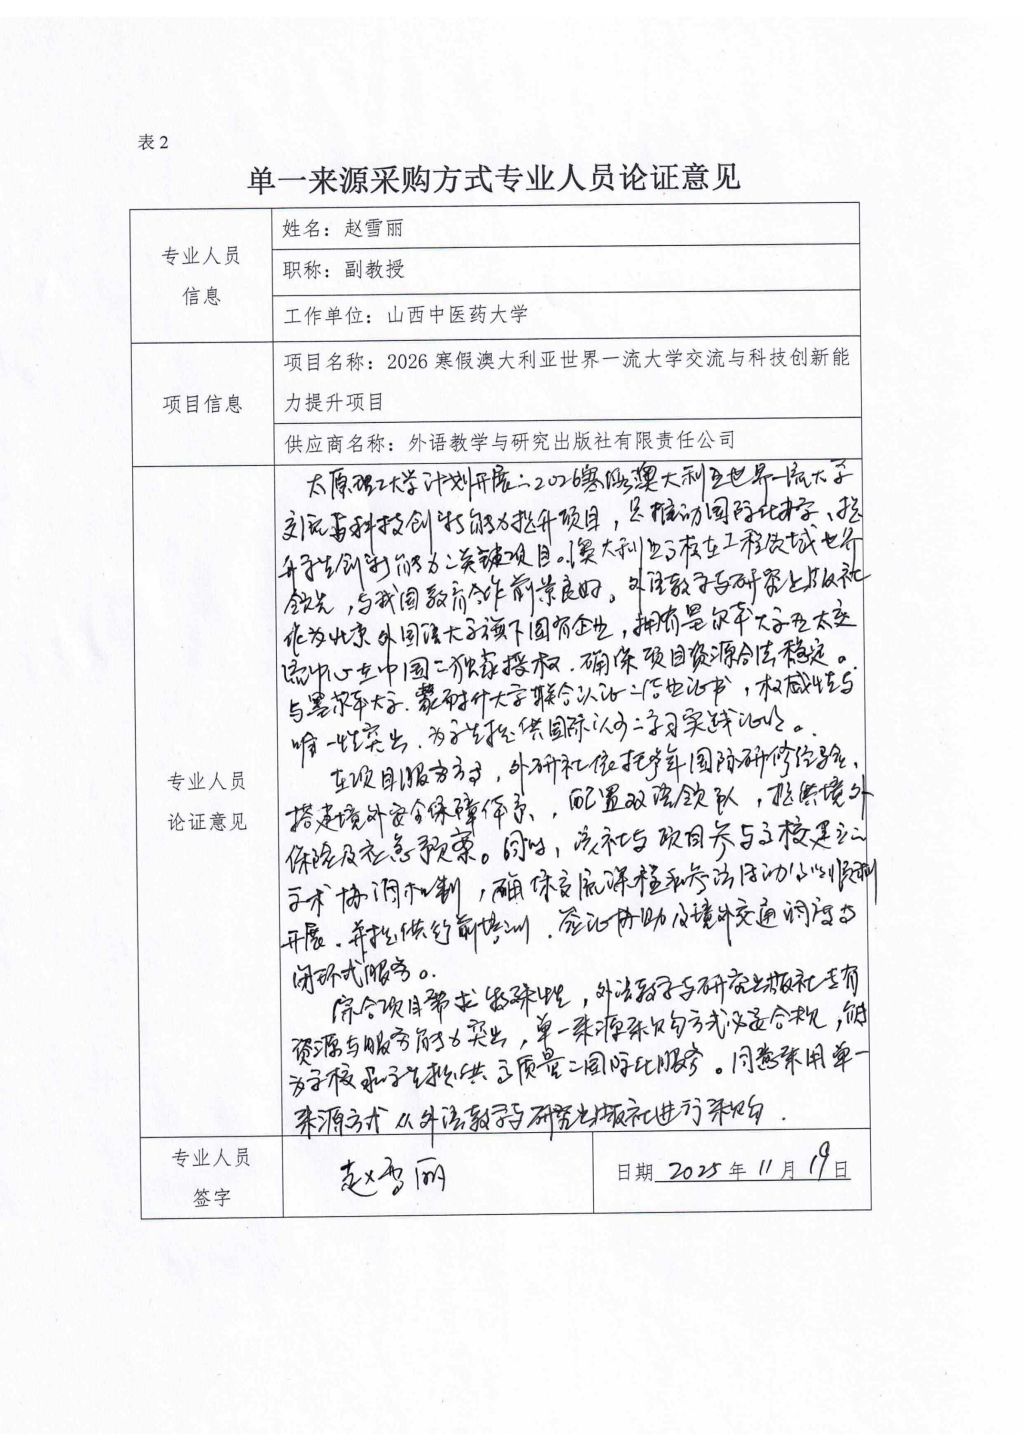 表2
单一来源采购方式专业人员论证意见
专业人员
信息
姓名：赵雪丽
职称：副教授
工作单位：山西中医药大学
项目信息
项目名称：2026寒假澳大利亚世界一流大学交流与科技创新能
力提升项目
供应商名称：外语教学与研究出版社有限责任公司
专业人员
论证意见
太原理工大学计划开展的2026寒假澳大利亚世界一流大学
交流与科技创新能力提升项目，是推动国际化办学、提
升学生创新能力的关键项目。澳大利亚高校在工程领域世界
领先，与我国教育合作前景良好。外语教学与研究出版社
作为北京外国语大学旗下国有企业，拥有墨尔本大学亚太交
流中心在中国的独家授权，确保项目资源合法稳定。
与墨尔本大学、蒙纳士大学联合认证的结业证书，权威性与
唯一性突出，为学生提供国际认可的学习实践证明。
在项目服务方面，外研社依托多年国际研修经验，
搭建境外安全保障体系，配置双语领队，提供境外
保险及应急预案。同时，该社与项目参与高校建立的
学术协调机制，确保交流课程和参访活动的顺利
开展，并提供行前培训、签证协助及境外交通调度等
闭环式服务。
综合项目需求特殊性，外语教学与研究出版社专有
资源与服务能力突出，单一来源采购方式必要合规，能
为学校和学生提供高质量的国际化服务。同意采用单一
来源方式从外语教学与研究出版社进行采购.
专业人员
签字
赵雪丽
日期 2025年11月19日